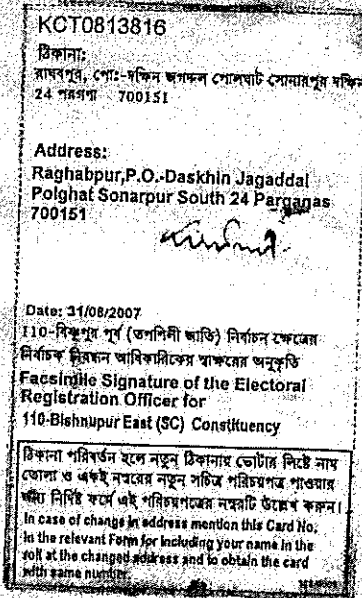 KCT0813816
ঠিকানা:
রাঘবপুর, পোঃ-দক্ষিন জগদ্দল পোলঘাট সোনারপুর দক্ষিন
24 পরগণা 700151
Address:
Raghabpur,P.O.-Daskhin Jagaddal
Polghat Sonarpur South 24 Parganas
700151
Date: 31/08/2007
110-বিষ্ণুপুর পূর্ব (তপশিলী জাতি) নির্বাচন ক্ষেত্রের
নির্বাচক নিবন্ধন আধিকারিকের স্বাক্ষরের অনুকৃতি
Facsimile Signature of the Electoral
Registration Officer for
110-Bishnupur East (SC) Constituency
ঠিকানা পরিবর্তন হলে নতুন ঠিকানায় ভোটার লিষ্টে নাম
তোলা ও একই নম্বরের নতুন সচিত্র পরিচয়পত্র পাওয়ার
জন্য নির্দিষ্ট ফর্মে এই পরিচয়পত্রের নম্বরটি উল্লেখ করুন।
In case of change in address mention this Card No.
in the relevant Form for including your name in the
roll at the changed address and to obtain the card
with same number.